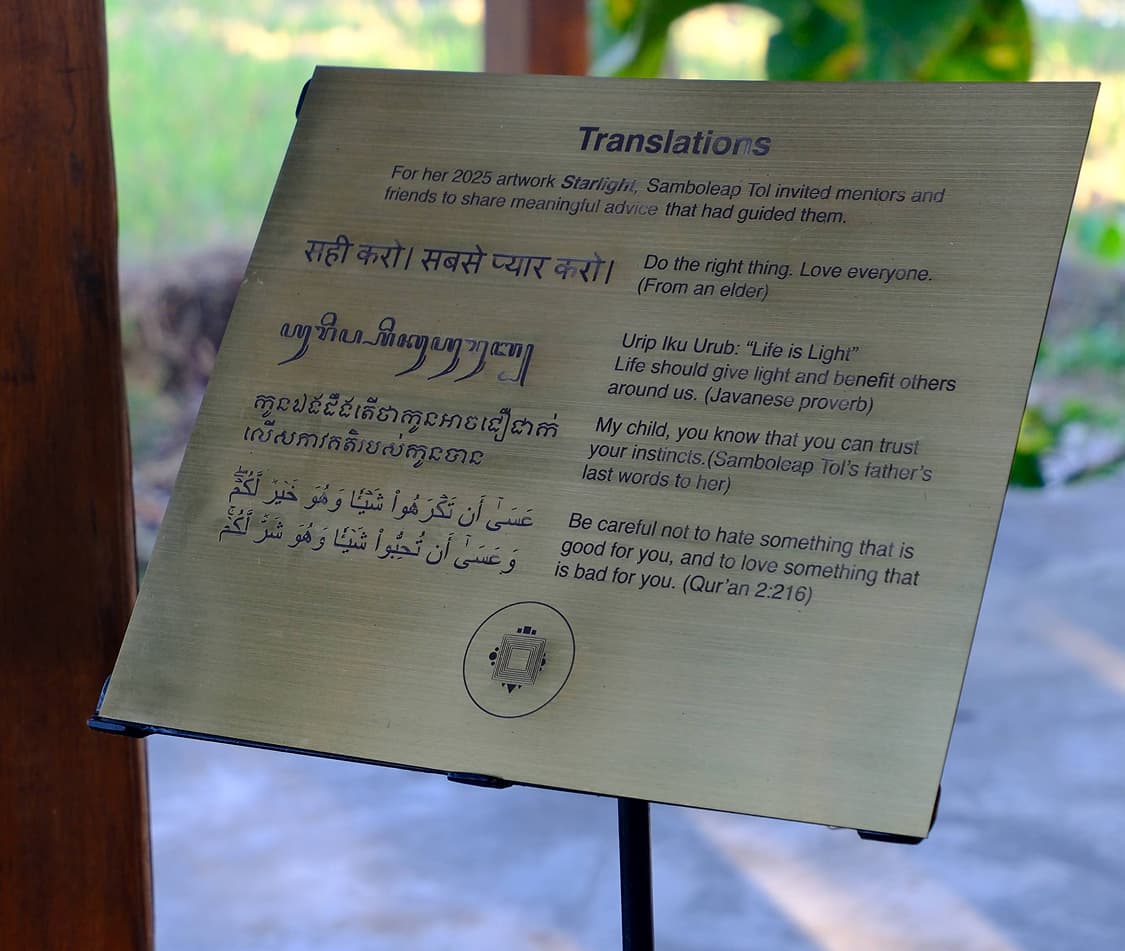 Translations
For her 2025 artwork Starlight, Samboleap Tol invited mentors and
friends to share meaningful advice that had guided them.
सही करो। सबसे प्यार करो।
Do the right thing. Love everyone.
(From an elder)
Urip Iku Urub: “Life is Light”
Life should give light and benefit others
around us. (Javanese proverb)
កូនឯងដឹងតើថាកូនអាចជឿជាក់
លើសភាវគតិរបស់កូនបាន
My child, you know that you can trust
your instincts.(Samboleap Tol’s father’s
last words to her)
عَسَىٰٓ أَن تَكْرَهُوا۟ شَيْـًٔا وَهُوَ خَيْرٌ لَّكُمْ
وَعَسَىٰٓ أَن تُحِبُّوا۟ شَيْـًٔا وَهُوَ شَرٌّ لَّكُمْ
Be careful not to hate something that is
good for you, and to love something that
is bad for you. (Qur’an 2:216)